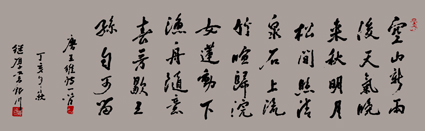 空山新雨
後天氣晚
來秋明月
松間照清
泉石上流
竹喧歸浣
女蓮動下
漁舟隨意
春芳歇王
孫自可留
唐王維詩一首
丁亥秋